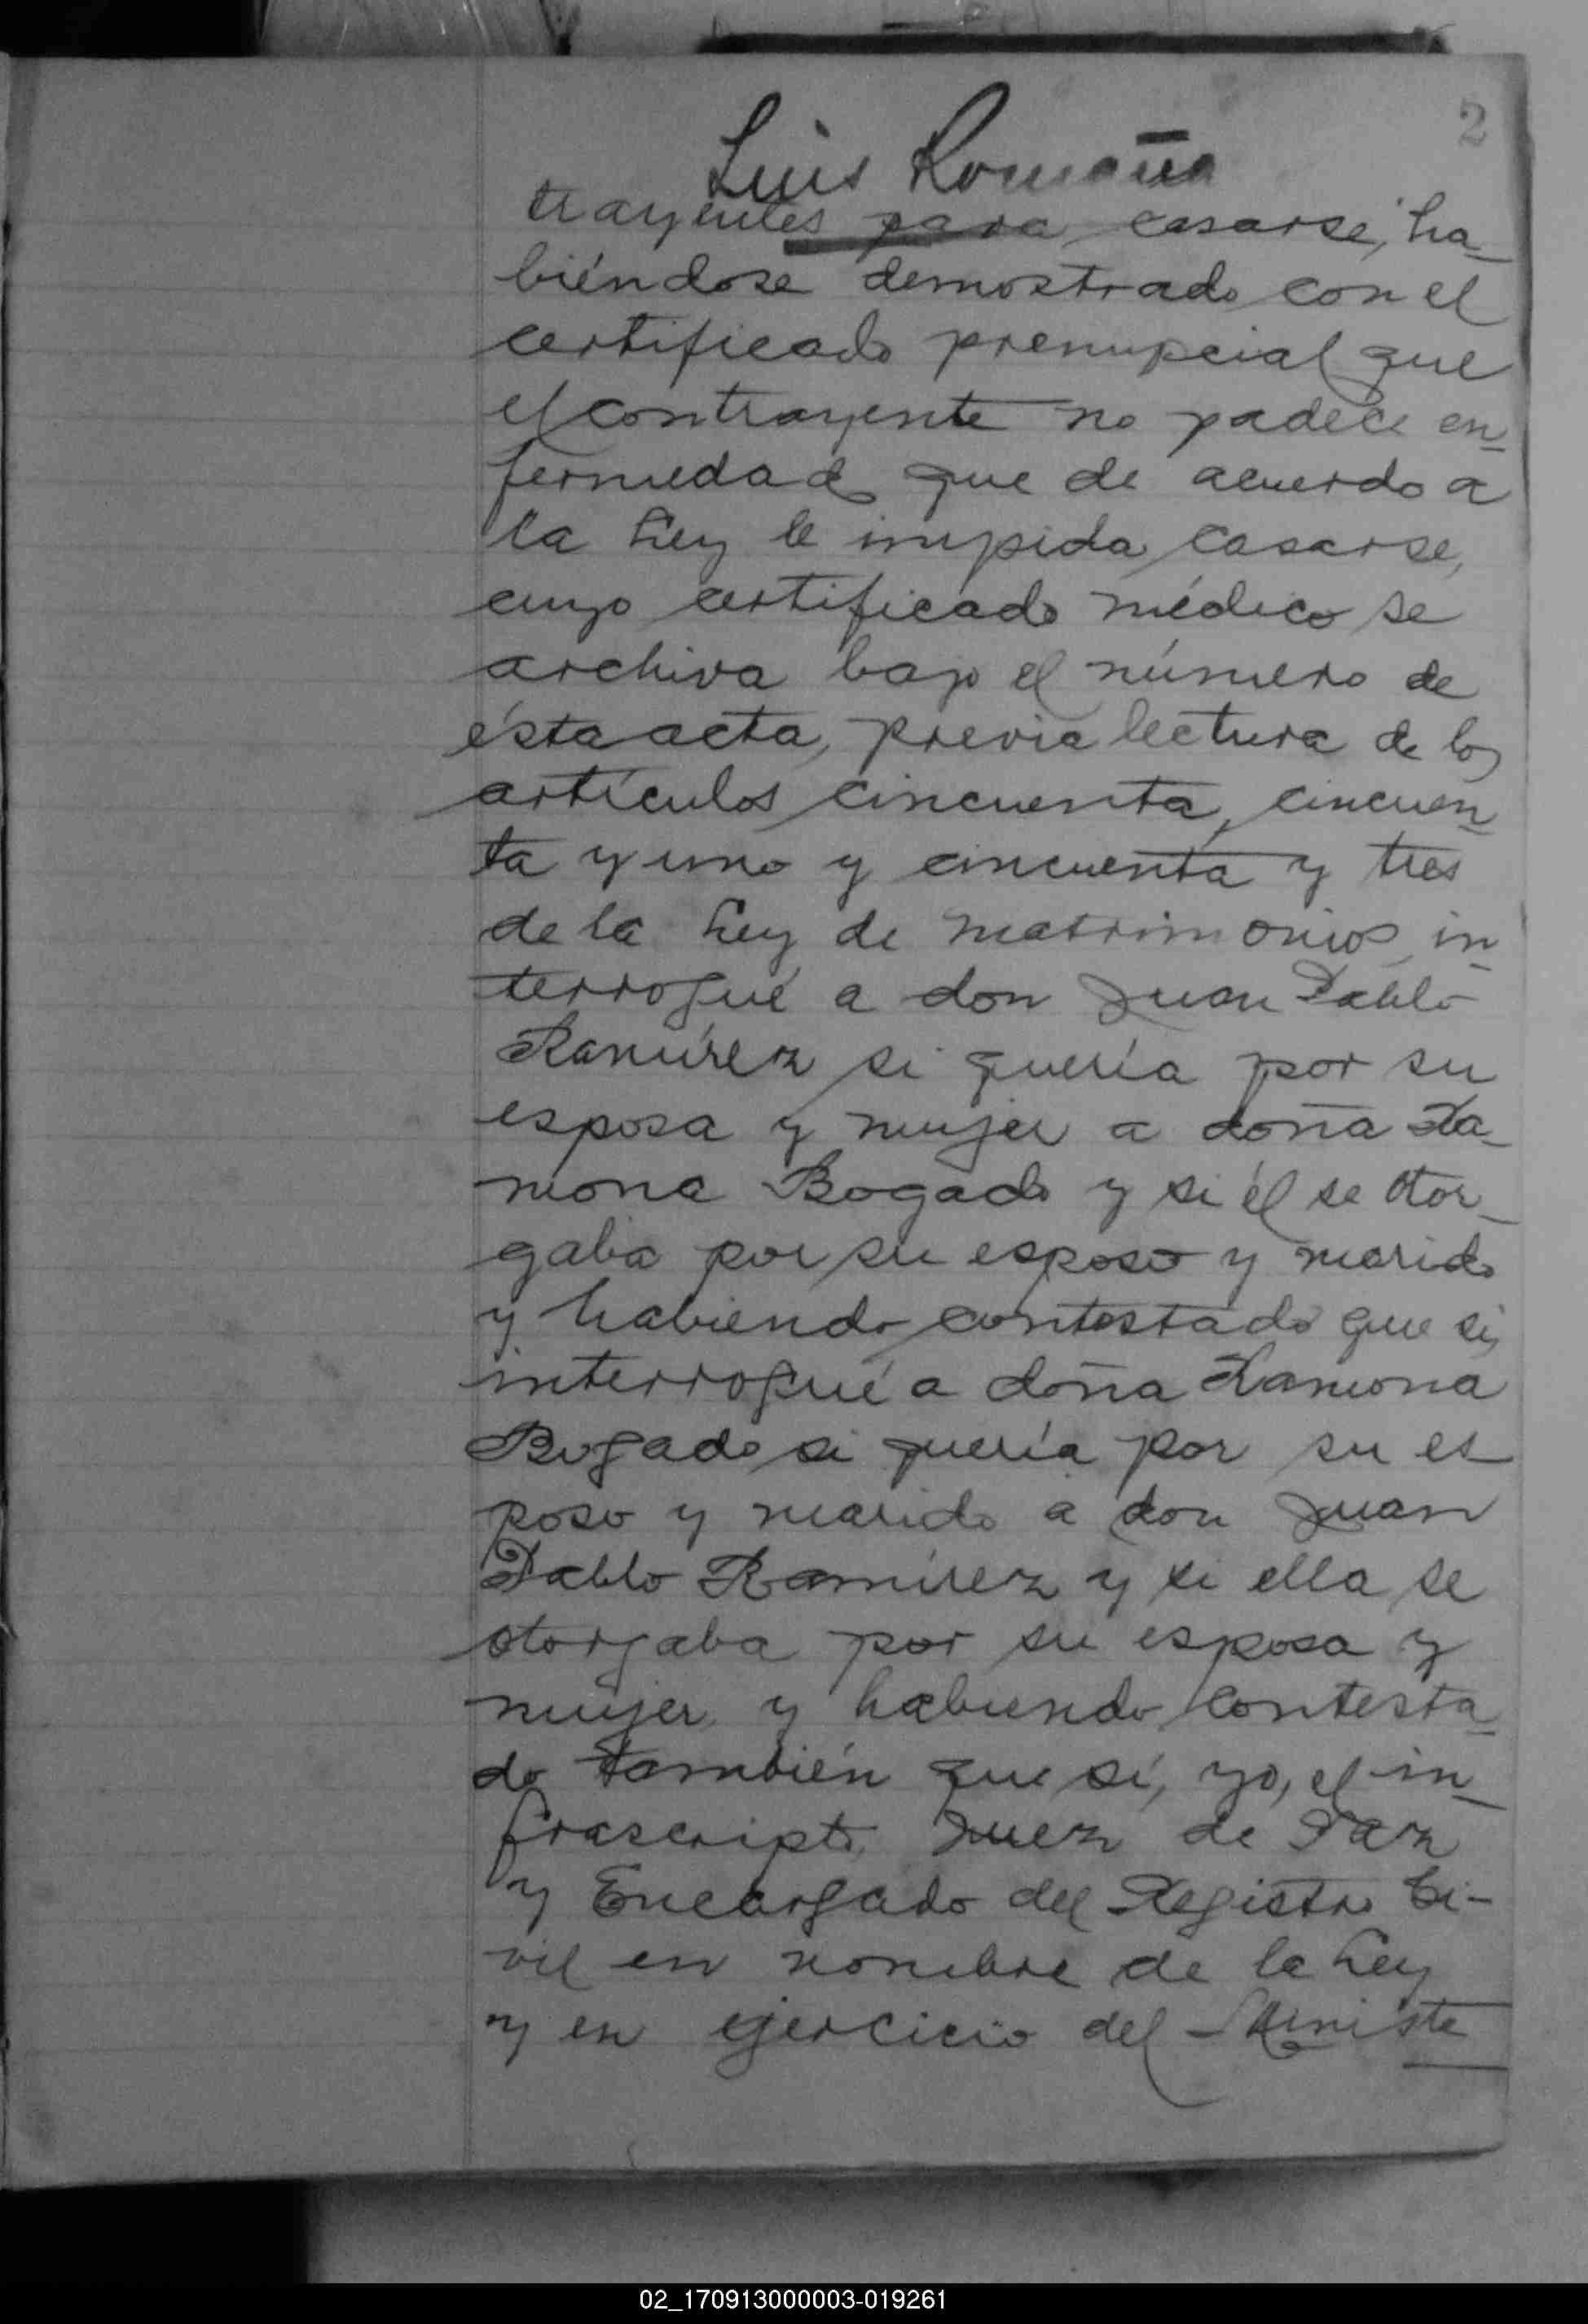 2
Luis Romaña
trayentes para casarse, ha-
biéndose demostrado con el
certificado prenupcial que
el contrayente no padece en-
fermedad que de acuerdo a
la Ley le impida casarse,
cuyo certificado médico se
archiva bajo el número de
ésta acta, previa lectura de los
artículos cincuenta, cincuen-
ta y uno y cincuenta y tres
de la Ley de matrimonios, in-
terrogué a don Juan Pablo
Ramírez si quería por su
esposa y mujer a doña Ra-
mona Bogado y si él se otor-
gaba por su esposo y marido
y habiendo contestado que si,
interrogué a doña Ramona
Bogado si quería por su es-
poso y marido a don Juan
Pablo Ramírez y si ella se
otorgaba por su esposa y
mujer y habiendo contesta-
do también que sí, yo, el in-
frascripto Juez de Paz
y Encargado del Registro Ci-
vil en nombre de la Ley
y en ejercicio del Ministe-
02_170913000003-019261